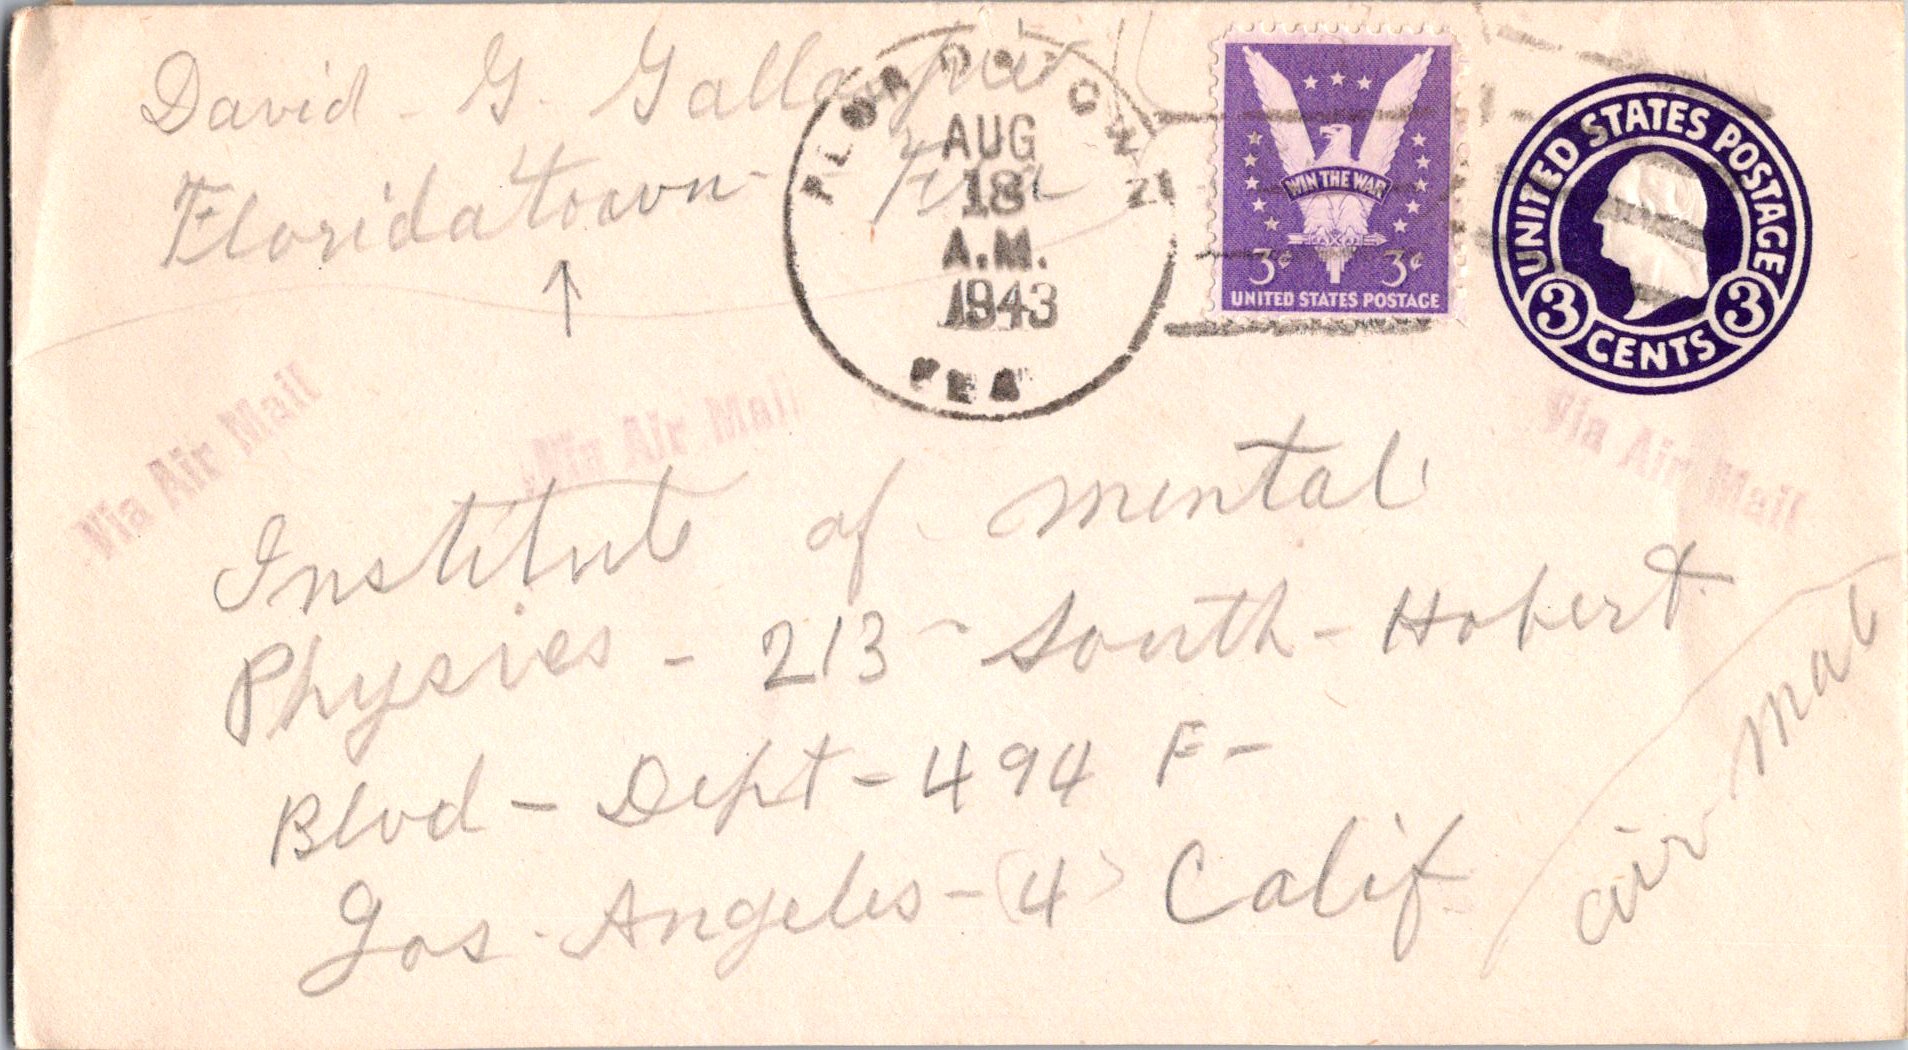 David - G.
Floridatown - Fla
AUG
18
A.M.
1943
FLA
WIN THE WAR
3¢ 3¢
UNITED STATES POSTAGE
UNITED STATES POSTAGE
3 3
CENTS
Via Air Mail
Via Air Mail
Via Air Mail
Institute of Mental
Physics - 213 - South - Hobert
Blvd - Dept - 494 F -
Los - Angeles - (4) Calif
Air-Mal